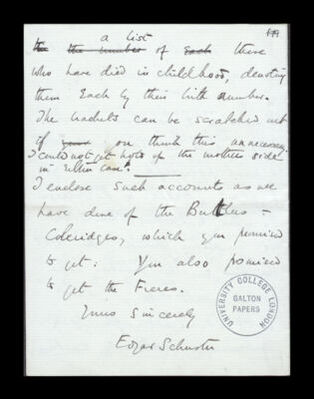 a list
the the number of each those
who have died in childhood, denoting
them each by their birth number.
The brackets can be scratched out
if you think this unnecessary.
I could not get hold of the mothers side
in either case.
I enclose such accounts as we
have done of the Butlers –
Coleridges, which you promised
to get: You also promised
to get the Freres.
Yours sincerely
Edgar Schuster
UNIVERSITY COLLEGE LONDON
GALTON
PAPERS